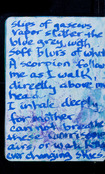 slips of gaseous
vapor slither the
blue grey with
soft blurs of white
A scorpion follows
me as I walk,
directly above my
head.
I inhale deeply,
for mother
can not breathe
these
airs, or watch the
ever changing skies